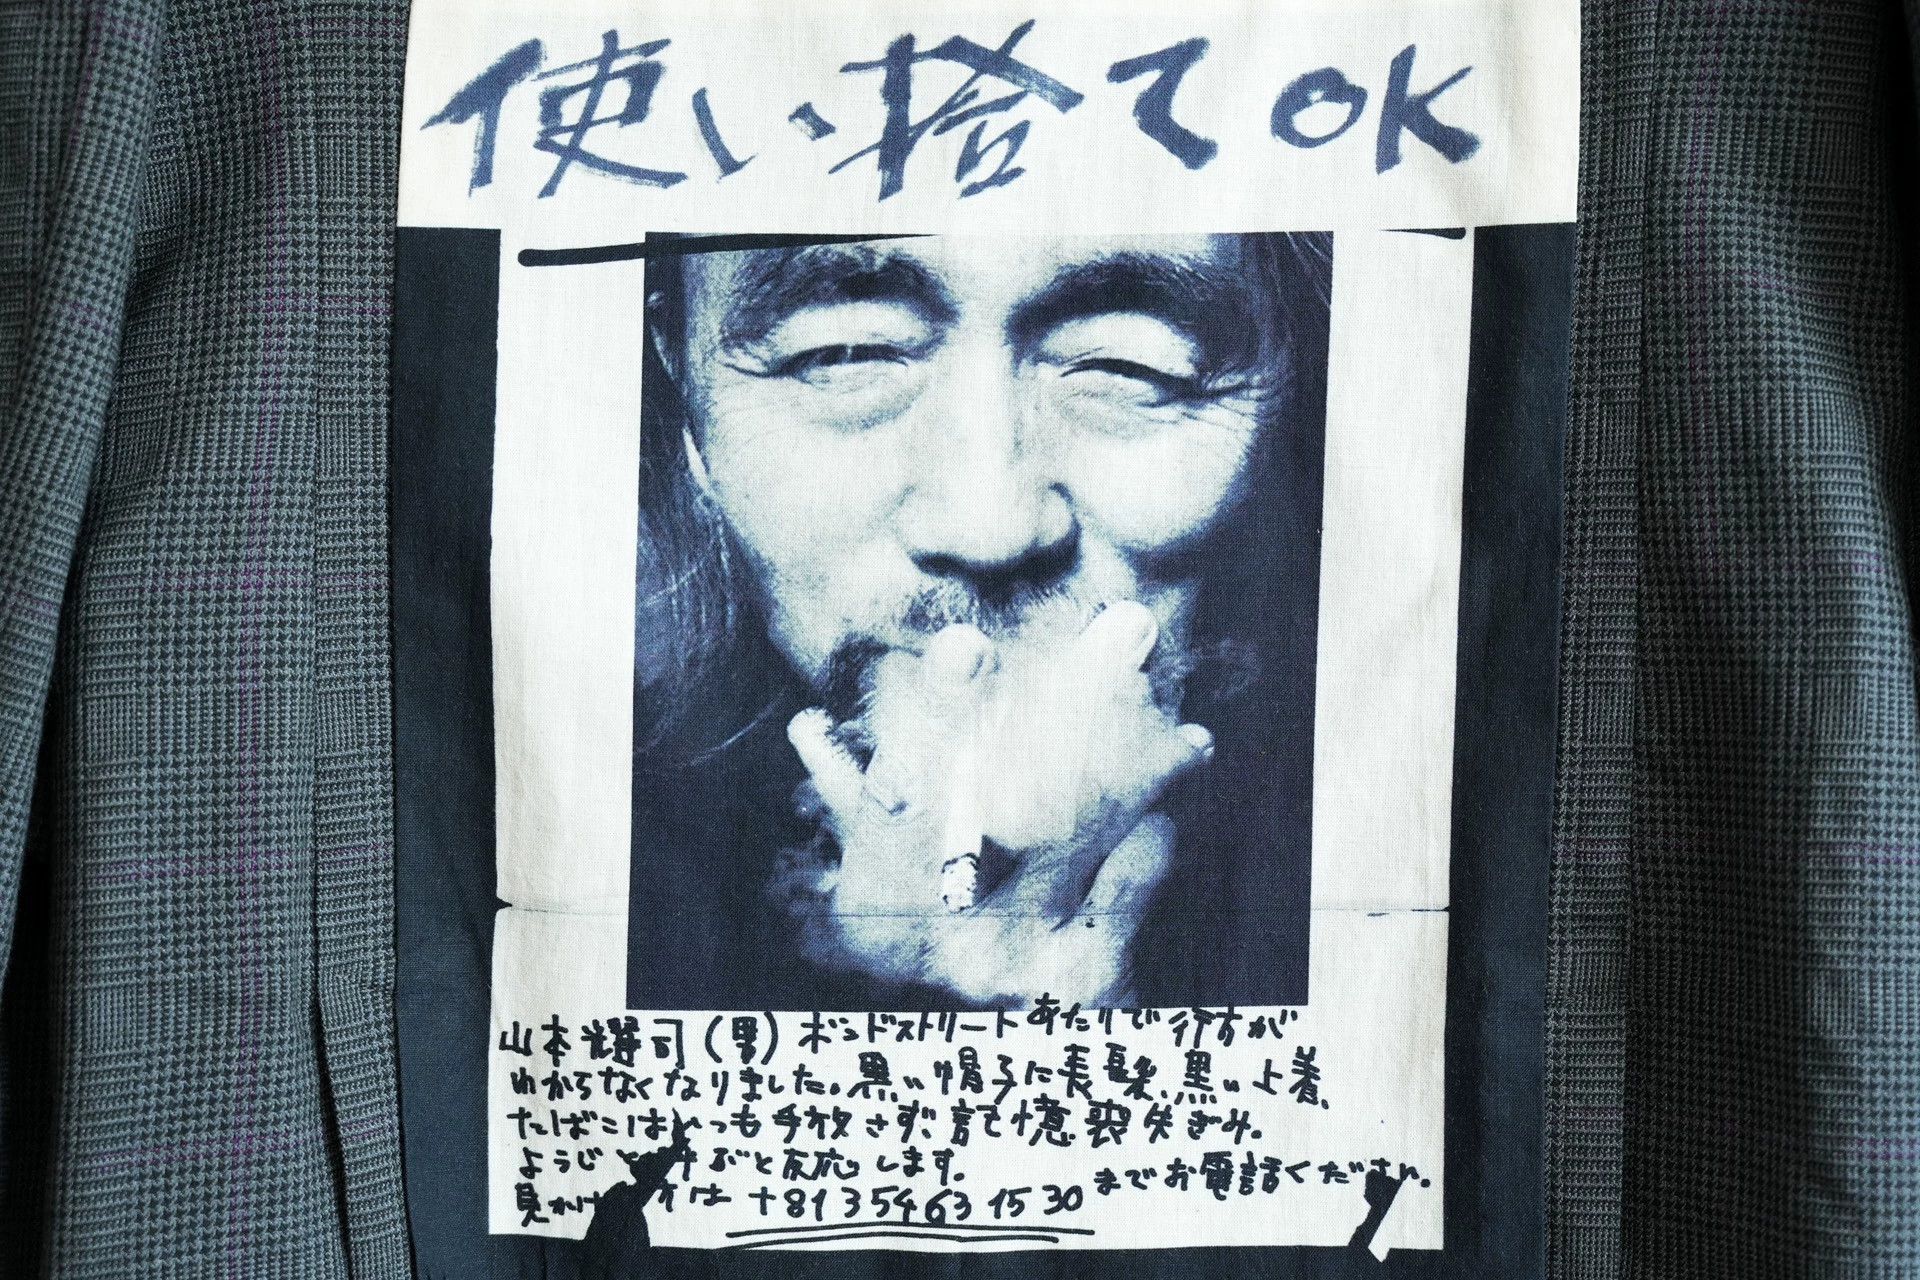 使い捨てOK
山本耀司(男)ボンドストリートあたりで行方が
わからなくなりました。黒い帽子に長髪、黒い上着、
たばこはいつも手放さず、記憶喪失ぎみ。
ようじと呼ぶと反応します。
見かけ 方は +81 3 5463 15 30 までお電話ください。